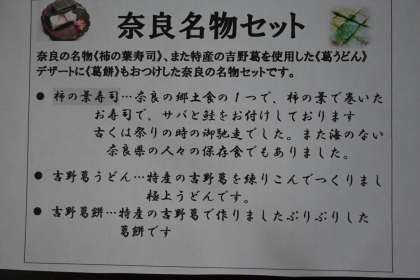 奈良名物セット
奈良の名物《柿の葉寿司》、また特産の吉野葛を使用した《葛うどん》
デザートに《葛餅》もおつけした奈良の名物セットです。
● 柿の葉寿司…奈良の郷土食の1つで、柿の葉で巻いた
お寿司で、サバと鮭をお付けしております
古くは祭りの時の御馳走でした。また海のない
奈良県の人々の保存食でもありました。
● 吉野葛うどん…特産の吉野葛を練りこんでつくりまし
極上うどんです。
● 吉野葛餅…特産の吉野葛で作りましたぷりぷりした
葛餅です